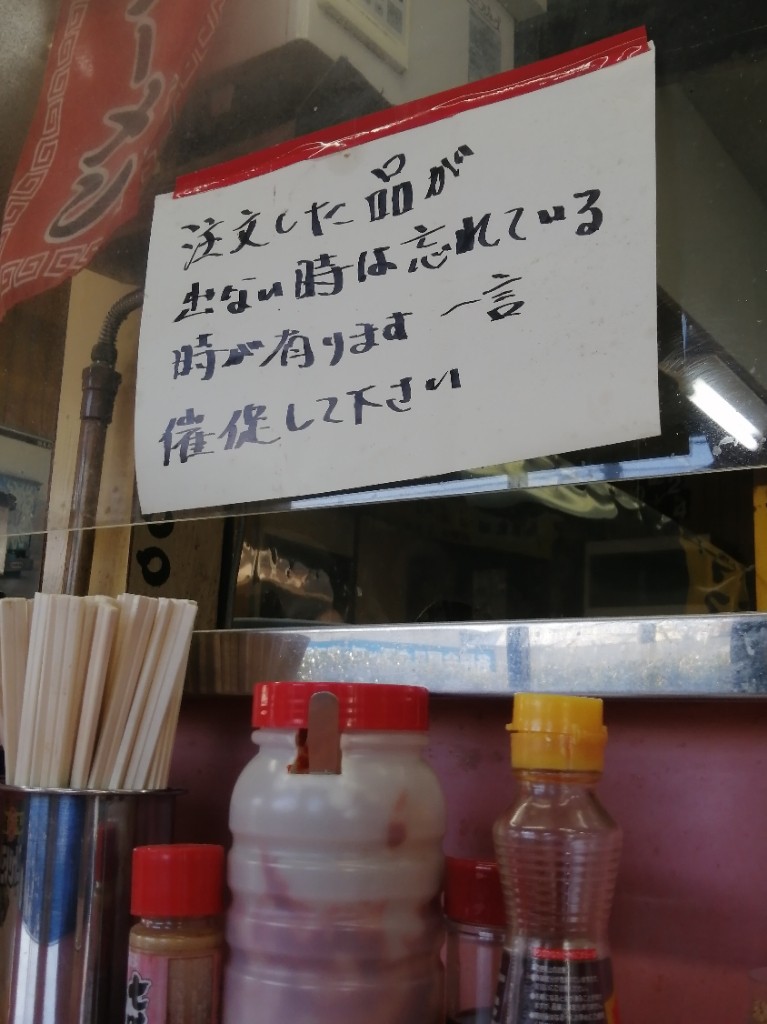 ラーメン
注文した品が
出ない時は忘れている
時が有ります 一言
催促して下さい
七